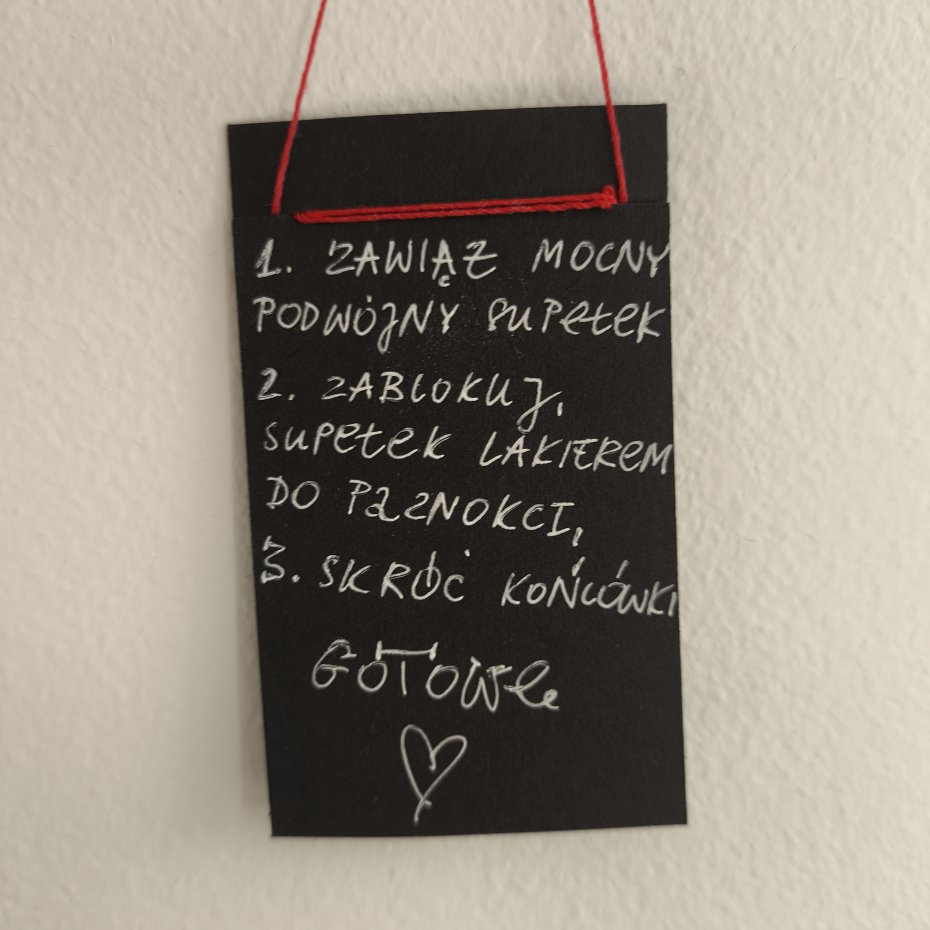 1. ZAWIĄŻ MOCNY
PODWÓJNY SUPEŁEK
2. ZABLOKUJ,
SUPEŁEK LAKIEREM
DO PAZNOKCI,
3. SKRÓĆ KOŃCÓWKI
GOTOWE
♡